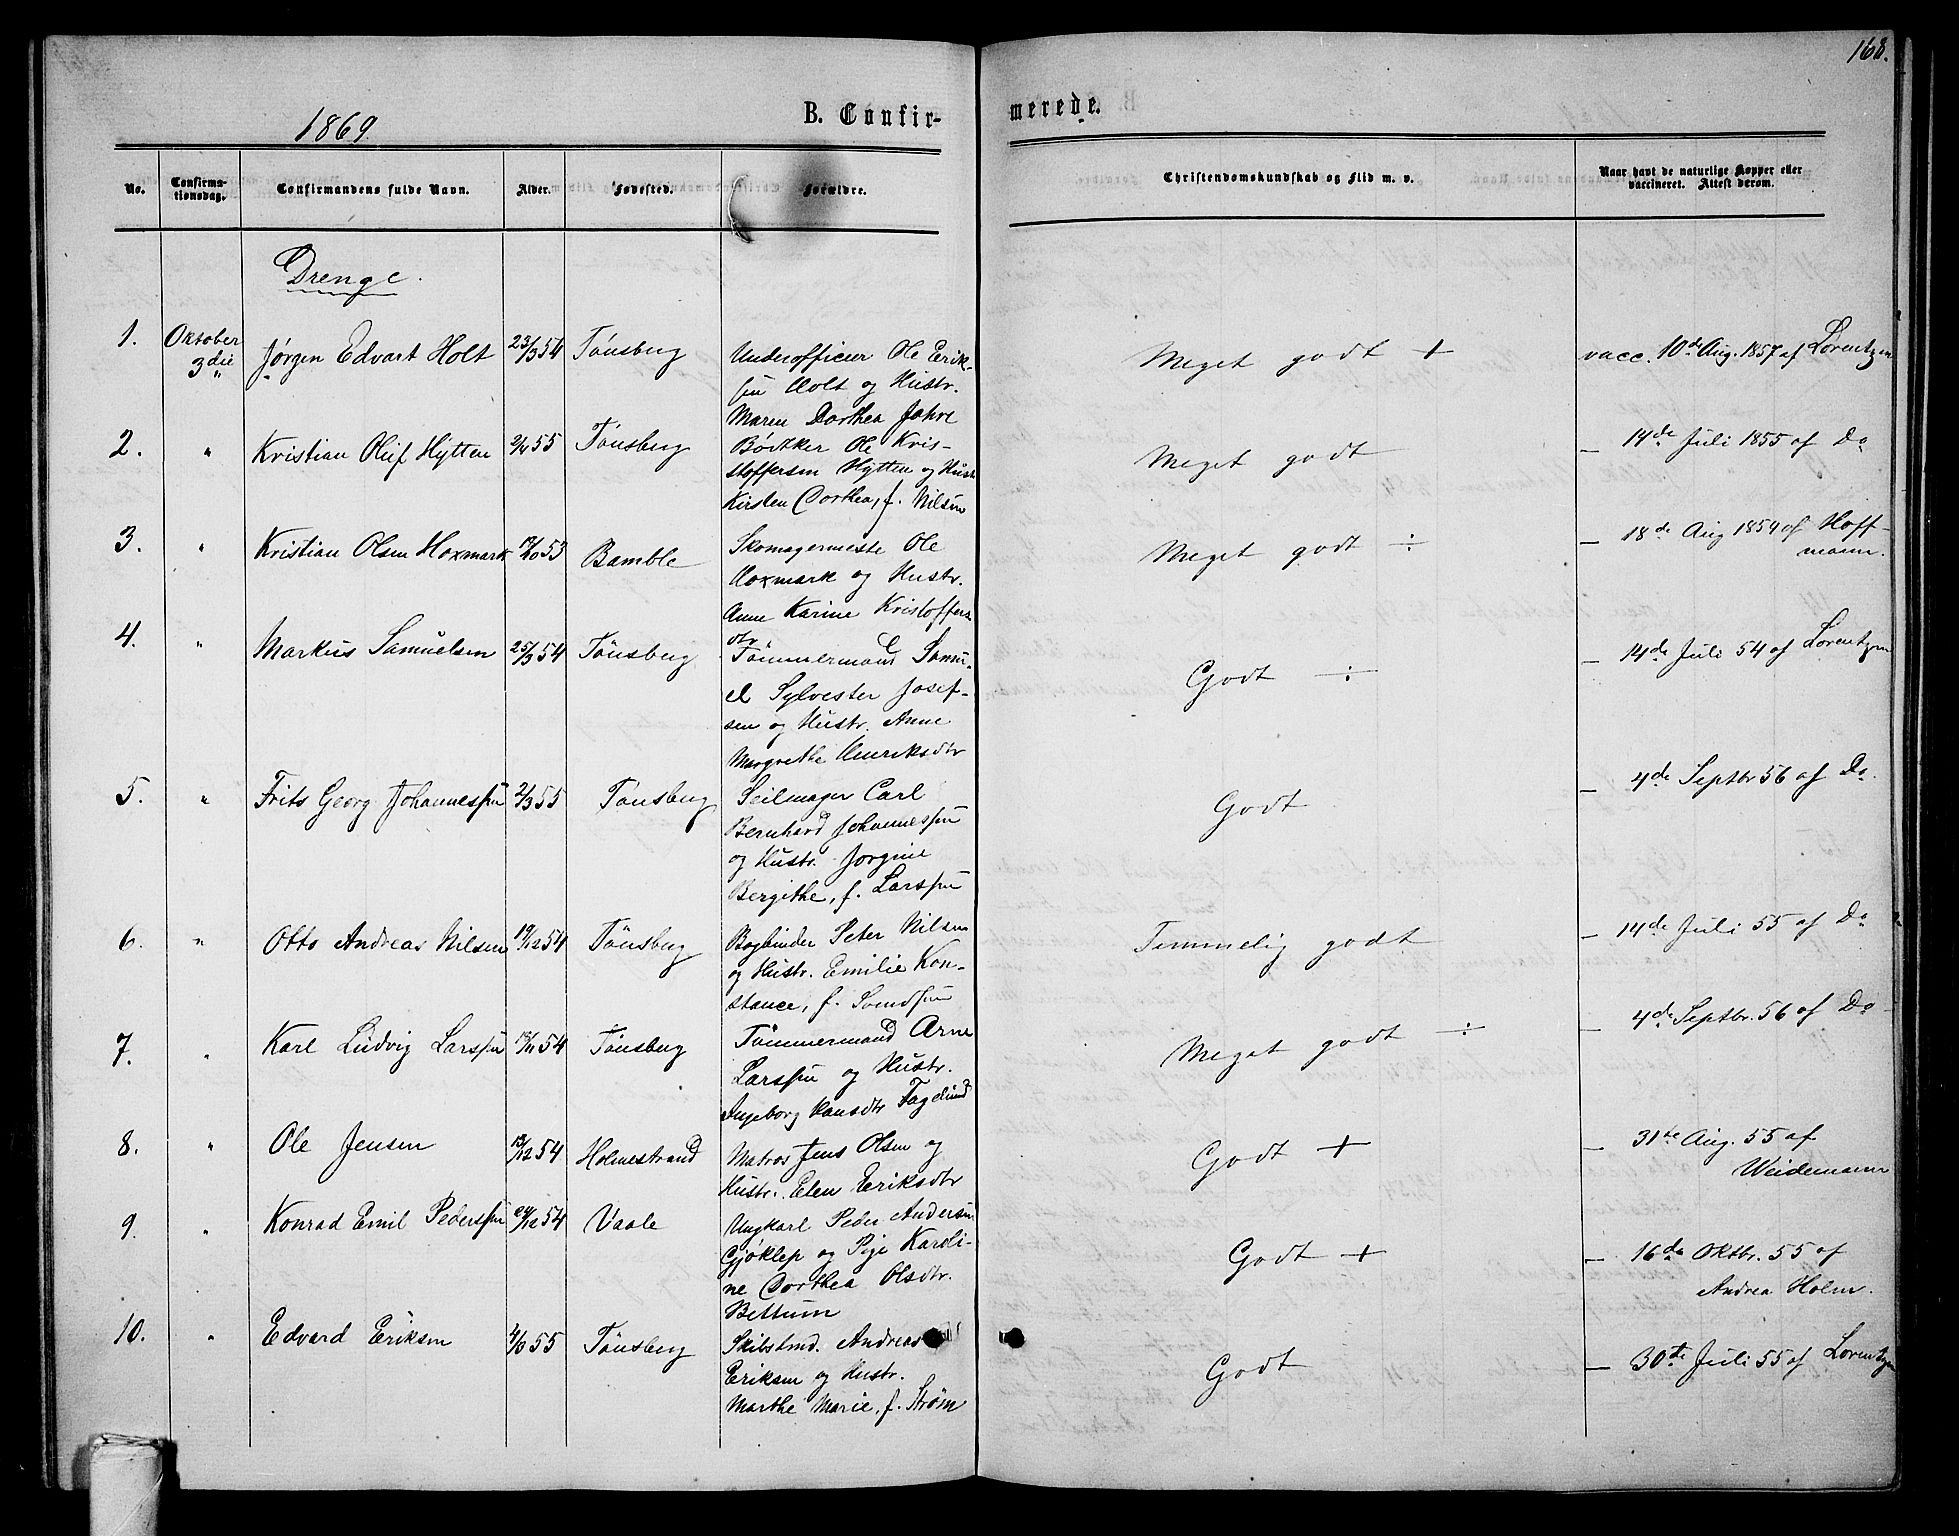 168.
1869.
B. Confirmerede.
No.
Confirmationsdag.
Confirmandens fulde Navn.
Alder.
Fødested.
Forældre.
Christendomskundskab og Flid m. v.
Naar havt de naturlige Kopper eller vaccineret. Attest derom.
Drenge.
1. Oktober 3die Jørgen Edvart Holt 23/3 54 Tónsberg
Underofficier Ole Erik-
sen Holt og Hustr.
Maren Dorthea Jahre
Meget godt +
vacc. 10de Aug. 1857 af Lorentzen
2. " Kristian Oluf Hytten 55 Tónsberg
Bødtker Ole Kris-
stoffersen Hytten og Hustr.
Kirsten Dorthea, f. Nilsen
Meget godt
— 14de Juli 1855 af Do
3. " Kristian Olsen Hoxmark 53 Bamble
Skomagermeste Ole
Hoxmark og Hustr.
Anne Karine Kristoffers
dtr.
Meget godt ÷
— 18de Aug 1854 af Hoff-
mann.
4. " Markus Samuelsen 25/3 54 Tónsberg
Tömmermand Samu-
el Sylvester Josef-
sen og Hustr. Anne
Margrethe Henriksdtr
Godt ÷
— 14de Juli 54 af Lorentzen
5. " Frits Georg Johannessen 2/3 55 Tónsberg
Seilmager Carl
Bernhard Johannessen
og Hustr. Jorgine
Bergithe, f. Larssen
Godt
— 4de Septbr 56 af Do.
6. " Otto Andreas Nilsen 19/12 54 Tónsberg
Bogbinder Peter Nilsen
og Hustr. Emilie Kon-
stance, f. Svendsen
Temmelig godt
— 14de Juli 55 af Do
7. " Karl Ludvig Larssen 54 Tónsberg
Tömmermand Arne
Larssen og Hustr.
Ingeborg Hansdtr Faglund
Meget godt ÷
— 4de Septbr. 56 af Do
8. " Ole Jensen 13/12 54 Holmestrand
Matros Jens Olsen og
Hustr. Elen Eriksdtr
Godt +
— 31te Aug. 55 af
Weidemann
9. " Konrad Emil Pederssen 24/12 54 Vaale
Ungkarl Peder Andersen
Gjøklep og Pige Karoli-
ne Dorthea Olsdtr.
Bettum
Godt +
— 16de Oktbr. 55 af
Andrea Holm.
10. " Edvard Eriksen 55 Tónsberg
Skibstmd. Andreas
Eriksen og Hustr.
Marthe Marie, f. Strøm
Godt
— 30te Juli 55 af Lorentzen